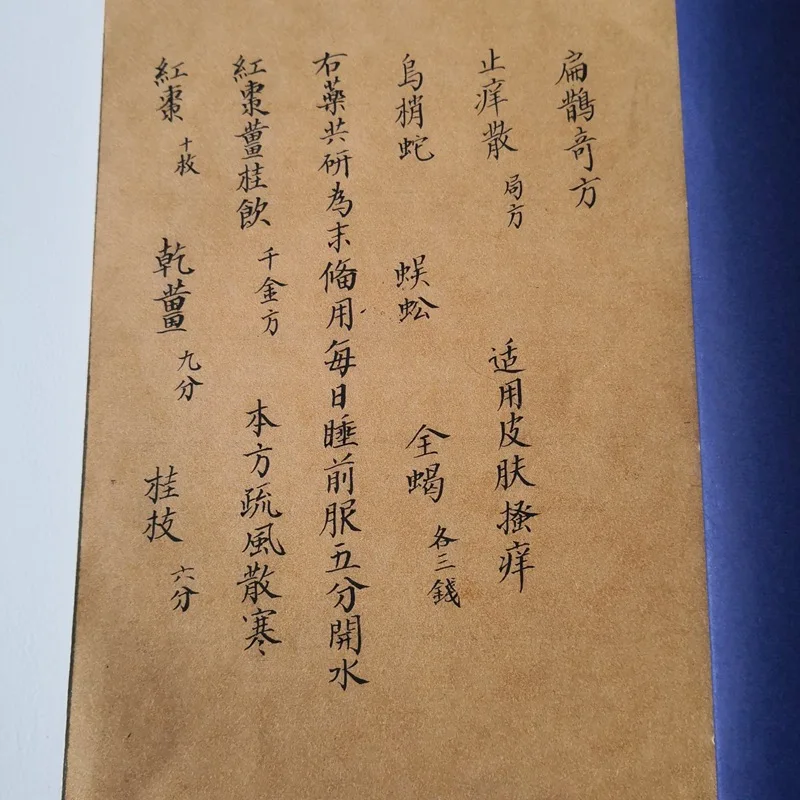 扁鵲奇方
止痒散 局方 适用皮肤搔痒
烏梢蛇 蜈蚣 全蝎 各三錢
右藥共研為末俻用每日睡前服五分開水
紅棗薑桂飲 千金方 本方疏風散寒
紅棗 十枚 乾薑 九分 桂枝 六分